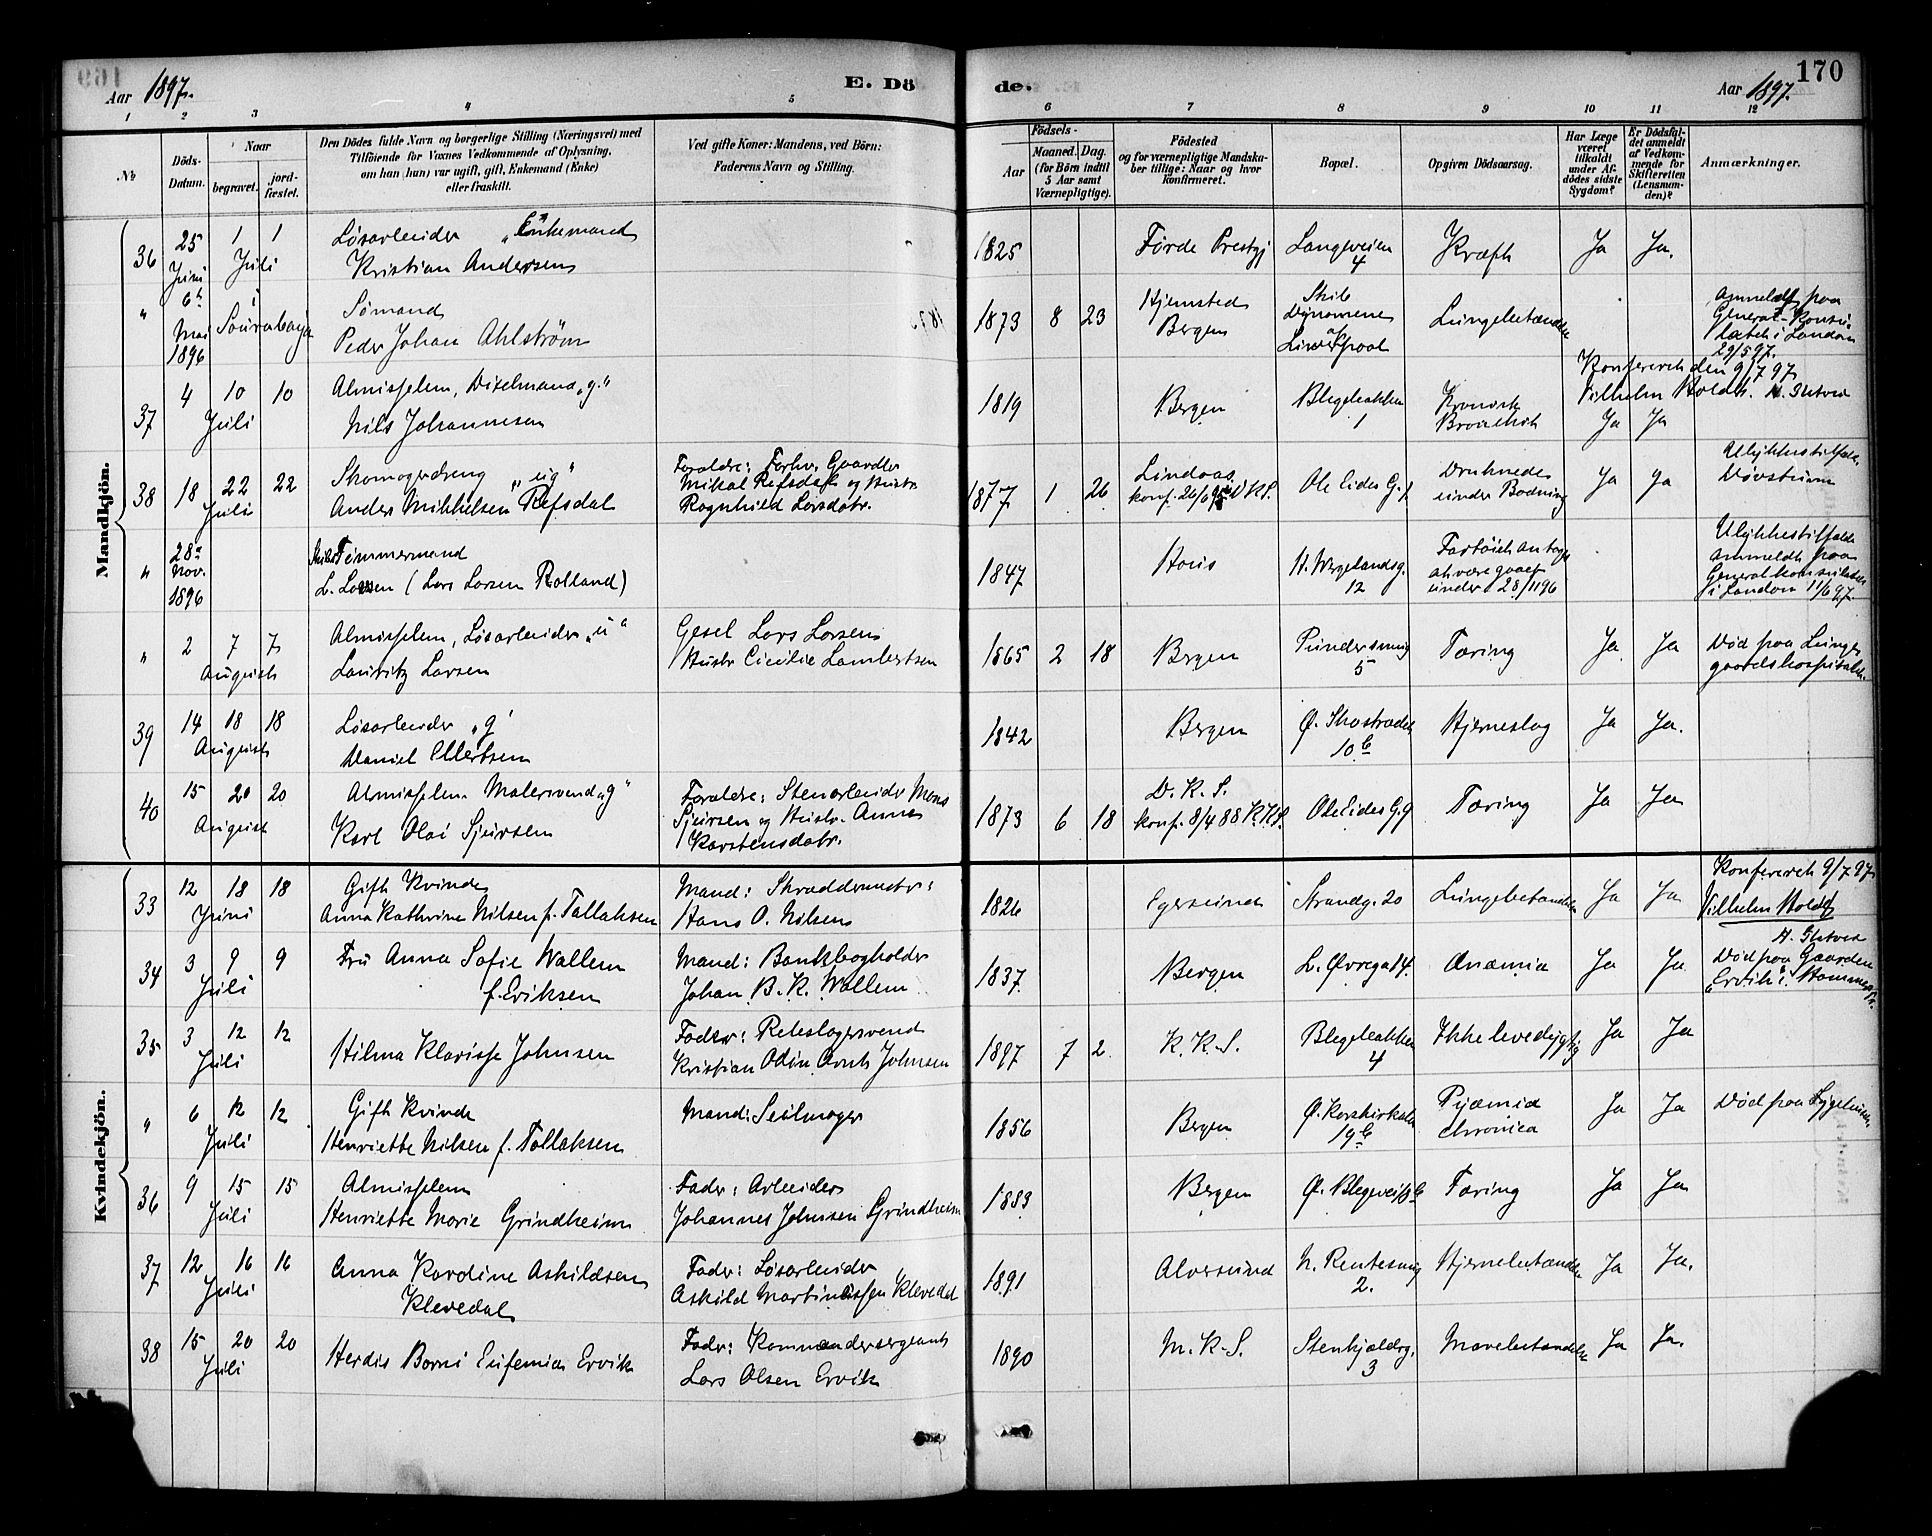 Aar 1897.
E. Dö
de.
Aar 1897.
170
1 2 3 4 5 6 7 8 9 10 11 12
№
Döds-Datum.
Naar
begravet.
jordfæstet.
Den Dödes fulde Navn og borgerlige Stilling (Næringsvei) med
Tilföiende for Voxnes Vedkommende af Oplysning,
om han (hun) var ugift, gift, Enkemand (Enke)
eller fraskilt.
Ved gifte Koner: Mandens, ved Börn:
Faderens Navn og Stilling.
Födsels-
Aar
Maaned. Dag.
(for Börn indtil
5 Aar samt
Værnepligtige).
Födested
og for værnepligtige Mandska-
ber tillige: Naar og hvor
konfirmeret.
Bopæl.
Opgiven Dödsaarsag.
Har Læge
været
tilkaldt
under Af-
dödes sidste
Sygdom?
Er Dödsfal-
det anmeldt
af Vedkom-
mende for
Skifteretten
(Lensman-
den)?
Anmærkninger.
Mandkjön.
36 25 Juni 1 1 Juli Løsarbeider "Enkemand"
Kristian Andersen
1825 Førde Prestgj Langeveien 4 Kræft Ja Ja.
" 6te Mai 1896 i Sourabaya Sømand
Peder Johan Ahlström
1873 8 23 Hjemsted Bergen Skib Dynomene af Liverpool Lungebetændelse
Anmeldt paa
General-Konsu-
latet i London
29/5 97.
Konfereret den 9/7 97
Vilhelm Holdt.
37 4 10 10 Juli Almisselem, Dixelmand "g."
Nils Johannesen
1819 Bergen Blegebakken 1 Kronisk Bronchit Ja Ja
38 18 22 22 Juli Skomagerdreng "ug"
Anders Mikkelsen Refsdal
Forældre: Forhv. Gaardbr
Mikal Refsdal og Hustr
Ragnhild Larsdatr.
1877 1 26 Lindaas
konf. 26/6 95 D.K.S. Ole Eides G. 1 Druknede
under Badning Ja Ja Ulykkestilfælde
" 28de Nov. 1896 Skibs Tømmermand
L. Larsen (Lars Larsen Rolland)
1847 Hous H. Wergelandsg. 12 Fartøiet antages
at være gaaet
under 28/11 96
Ulykkestilfælde
anmeldt paa
Generalkonsulatet
i London 11/6 97.
" 2 7 7 August Almisselem, Løsarbeider "u"
Lauritz Larsen
Gesel Lars Larsen
Hustr Cicilie Lambertsen
1865 2 18 Bergen Pundersmug 5 Tæring Ja Ja Død paa Lunge-
gaardshospitalet.
39 14 18 18 August Løsarbeider "g"
Daniel Ellertsen
1842 Bergen Ø. Skostrædet 10b Hjerneslag Ja Ja.
40 15 20 20 August Almisselem Malersvend "g"
Karl Olai Sjursen
Forældre: Stenarbeider Mons
Sjursen og Hustr. Anna
Karstensdatr.
1873 6 18 D.K.S.
konf. 8/4 88 K.K.S. Ole Eides G. 9 Tæring Ja Ja
Kvindekjön.
33 12 18 18 Juni Gift Kvinde
Anna Kathrine Nilsen f. Tollaksen
Mand: Skræddermester:
Hans O. Nilsen
1826 Egersund Strandg. 20 Lungebetændelse Ja Ja Konfereret 9/7 97.
Vilhelm Holdt
34 3 9 9 Juli Fru Anna Sofie Wallem
f. Eriksen
Mand: Bankbogholder
Johan B. K. Wallem
1837 L. Øvregd 4. Bergen Anæmia Ja Ja Død paa Gaarden
"Ervik" i Hammer Pr.
35 3 12 12 Juli Hilma Klarisse Johnsen
Fader: Rebslagersvend
Kristian Odin Arnt Johnsen
1897 7 2 K.K.S. Blegebakken 4 Ikke levedygtig Ja Ja
" 6 12 12 Juli Gift Kvinde
Henriette Nilsen f. Tollaksen
Mand: Seilmager
1856 Bergen Ø. Korskirkealm 19b Pyæmia
chronica Ja Ja Død paa Sygehuset
36 9 15 15 Juli Almisselem
Henriette Marie Grindheim
Fader: Arbeider
Johannes Johnsen Grindheim
1883 Bergen Ø. Blegevei Tæring Ja Ja
37 12 16 16 Juli Anna Kardine Askildsen
Klevedal
Fader: Løsarbeider
Askild Martinussen Klevedal
1891 Alversund N. Rentesmug 2. Hjernebetændelse Ja Ja.
38 15 20 20 Juli Herdis Borni Eufemia Ervik
Fader: Kommandersergeant
Lars Olsen Ervik
1890 M.K.S. Stenkjeldrg. 3 Mavebetændelse Ja Ja.